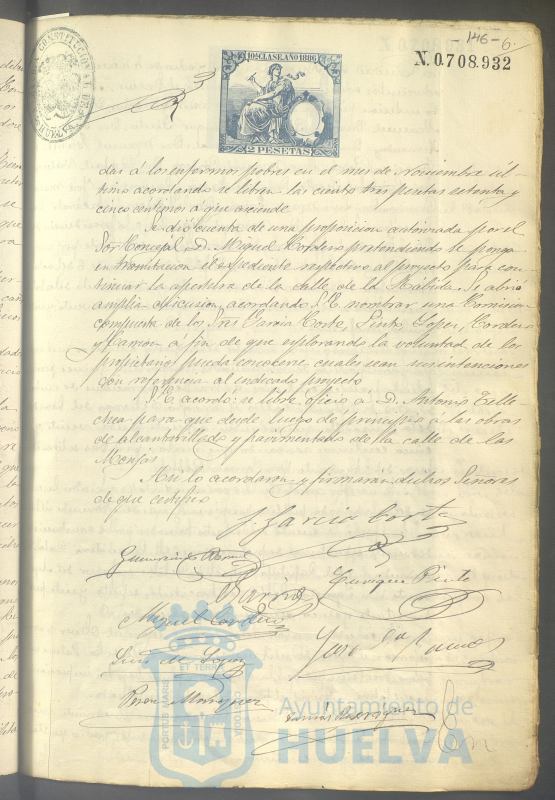 -146-6.
N.0.708.932
10ª CLASE AÑO 1886
2 PESETAS
das á los enfermos pobres en el mes de Noviembre úl-
timo acordando se libren las ciento tres pesetas setenta y
cinco céntimos á que asciende
Se dió cuenta de una proposicion autorizada por el
Sor Concejal D. Miguel Cordero pretendiendo se ponga
en tramitacion el expediente respectivo al proyecto para con-
tinuar la apertura de la calle de la Rábida. Se abrió
amplia discusion, acordando S.E. nombrar una Comision
compuesta de los Sres Garcia Corte, Pinto, Lopez, Cordero
y Ramon á fin de que explorando la voluntad de los
propietarios pueda conocerse cuales sean sus intenciones
con referencia al indicado proyecto
S.E. acordó: se libre oficio á D. Antonio Telle-
chea para que desde luego dé principio á las obras
de alcantarillado y pavimentado de la calle de las
Monjas
Asi lo acordaron y firmarán dichos Señores
de que certifico
J. Garcia Corte
Enrique Pinto
Miguel Cordero
Luis de Lopez
Perez Marquez
PORTUS MARIS ET TERRAE CUSTODIA
Ayuntamiento de
HUELVA